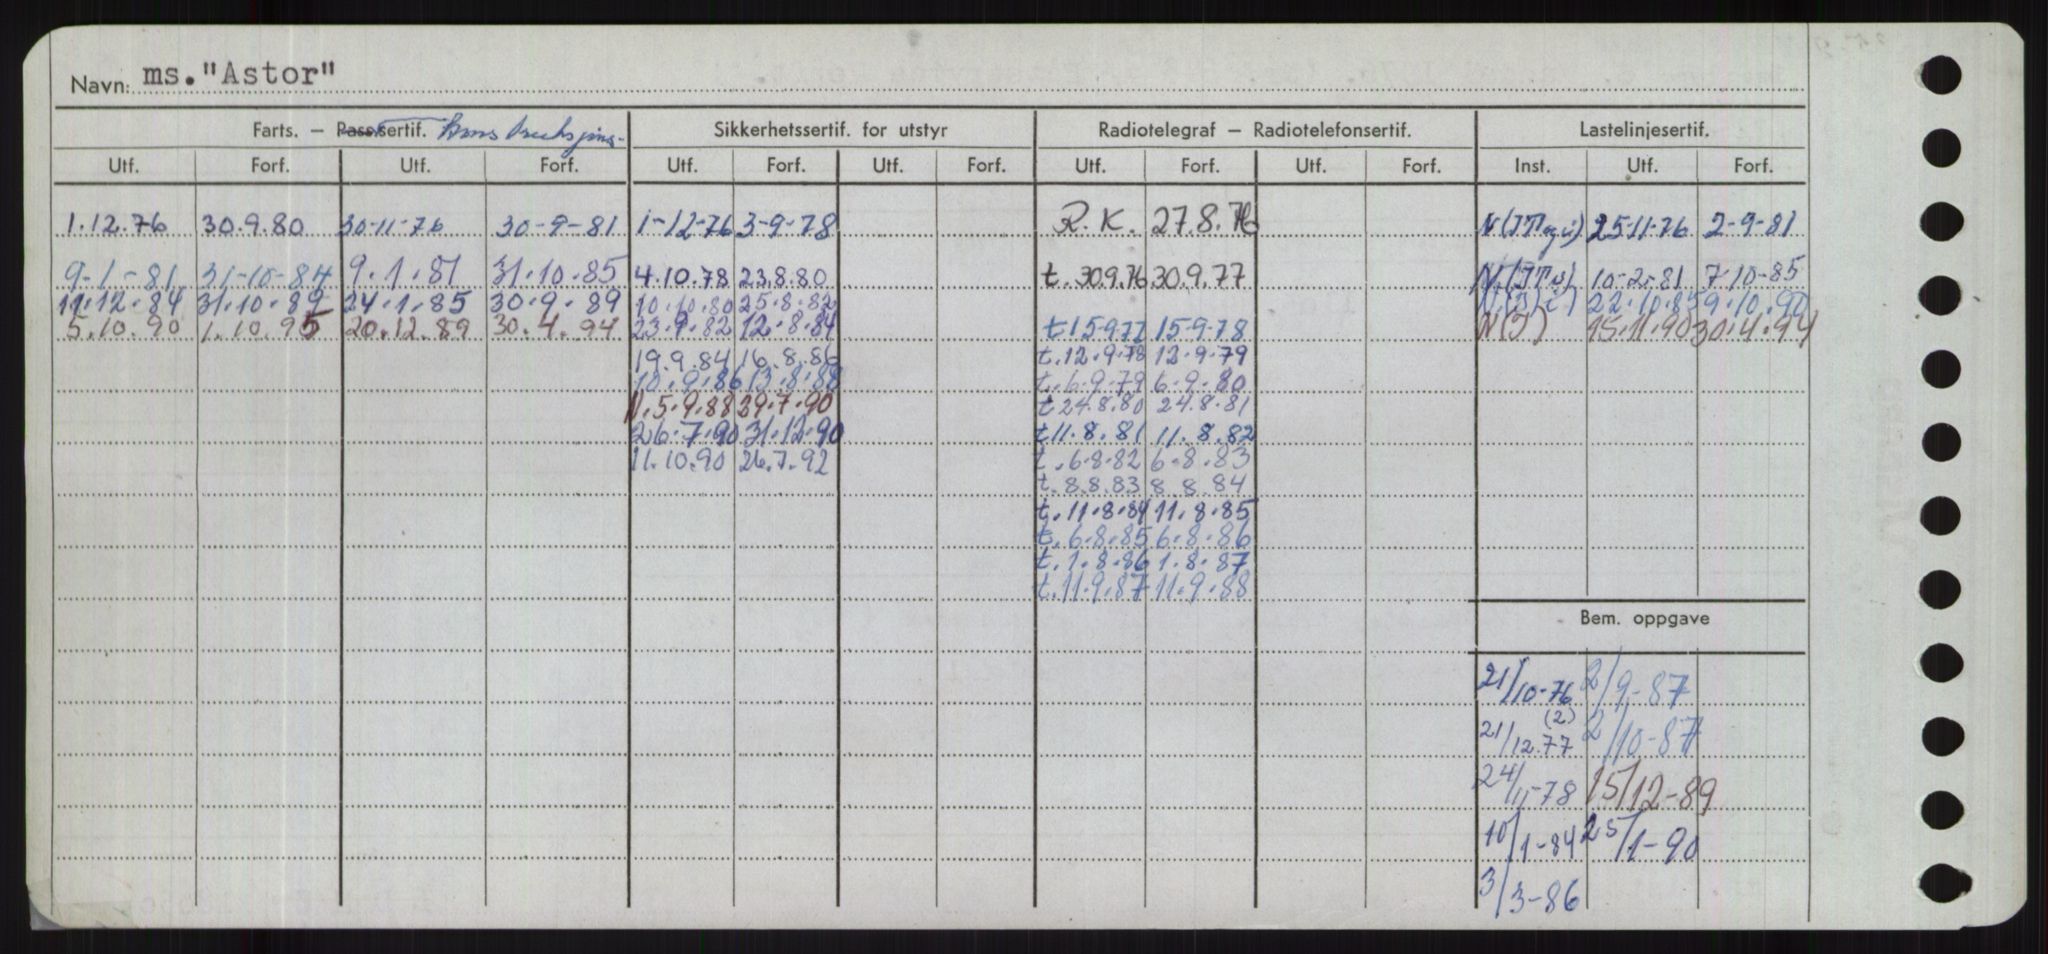 Navn: ms. "Astor"
Farts. — Passsertif. Sikkerhetssertif. for utstyr Radiotelegraf — Radiotelefonsertif. Lastelinjesertif.
Utf. Forf. Utf. Forf. Utf. Forf. Utf. Forf. Utf. Forf. Utf. Forf. Inst. Utf. Forf.
1.12.76 30.9.80 30-11-76 30-9-81 1-12-76 3-9-78 R.K. 27.8.76 25-11-76 2-9-81
9-1-81 31-10-84 9.1.81 31.10.85 4.10.78 23.8.80 t.30.9.76 30.9.77 10-2-81 7-10-85
11.12.84 31.10.89 24.1.85 30.9.89 10.10.80 25.8.82 22.10.85 9.10.90
5.10.90 1.10.95 20.12.89 30.4.94 23.9.82 12.8.84 t15-9-77 15-9-78 N(I) 15.11.90 30.4.94
19.9.84 16.8.86 t.12-9-78 12-9-79
10.9.86 13.8.88 t.6.9.79 6.9.80
N.5.9.88 29.7.90 t24.8.80 24.8.81
26.7.90 31.12.90 t11.8.81 11.8.82
11.10.90 26.7.92 t.6.8.82 6.8.83
t.8.8.83 8.8.84
t.11.8.84 11.8.85
t.6.8.85 6.8.86
t.1.8.86 1.8.87
t.11.9.87 11.9.88
Bem. oppgave
21/10-76 2/9-87
(2)
21/12.77 2/10-87
24/11-78 15/12-89
10/1-84 25/1-90
3/3-86